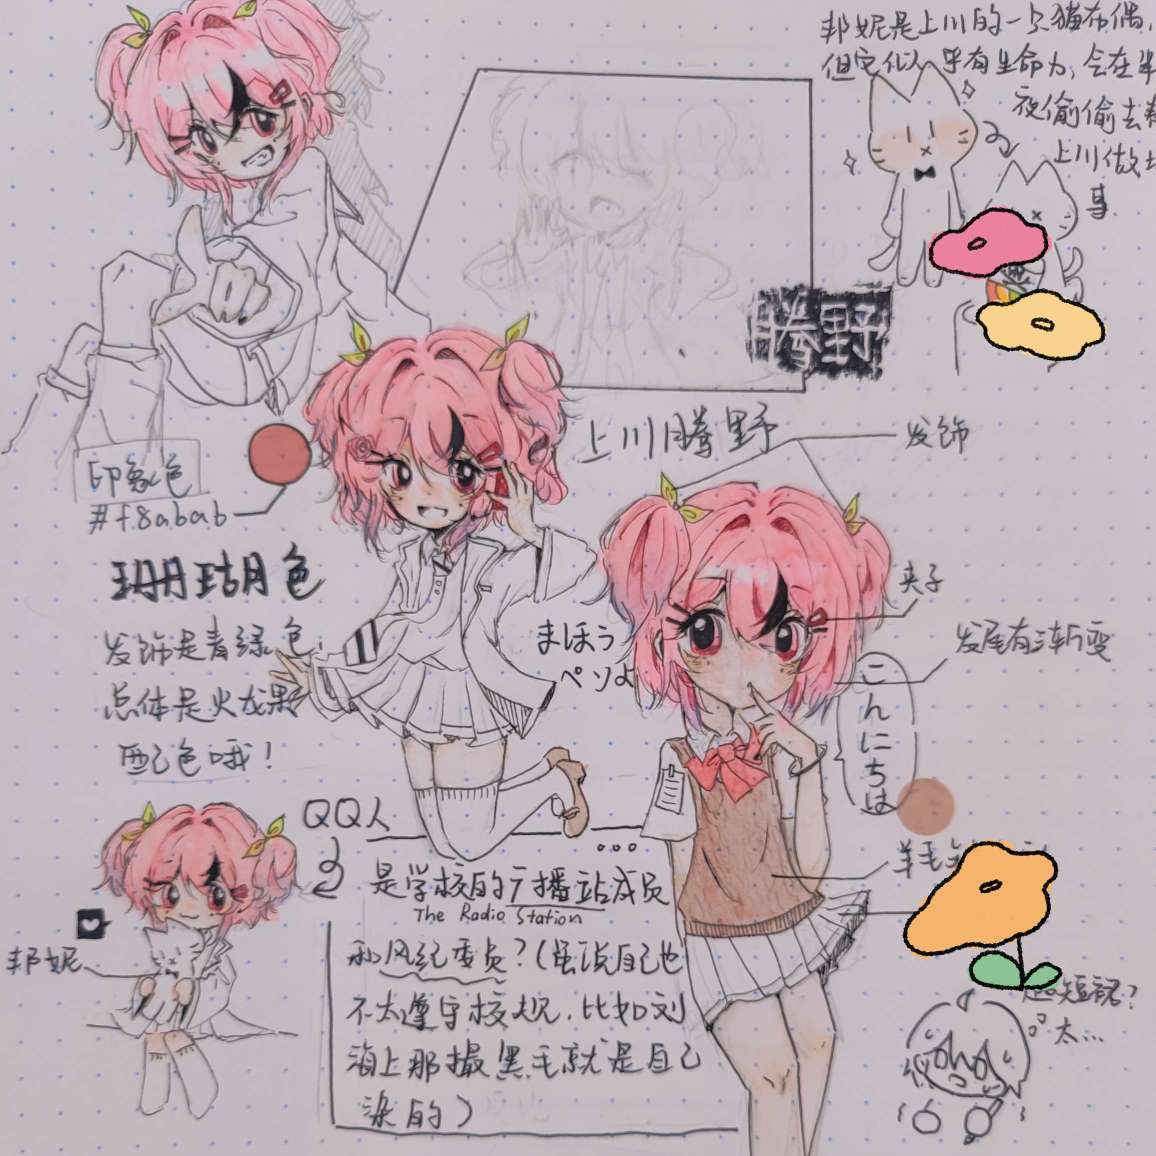 邦妮是上川的一只猫布偶，
但它似乎有生命力，会在半
夜偷偷去帮
上川做坏
事
腾野
上川腾野
发饰
印象色
#f8abab
珊瑚色
发饰是青绿色，
总体是火龙果
配色哦！
まほう
夹子
发尾有渐变
こんにちは
QQ人
是学校的广播站成员
The Radio Station
和风纪委员？（虽说自己也
不太遵守校规，比如刘
海上那撮黑毛就是自己
染的）
羊毛
邦妮
短裙？
太...